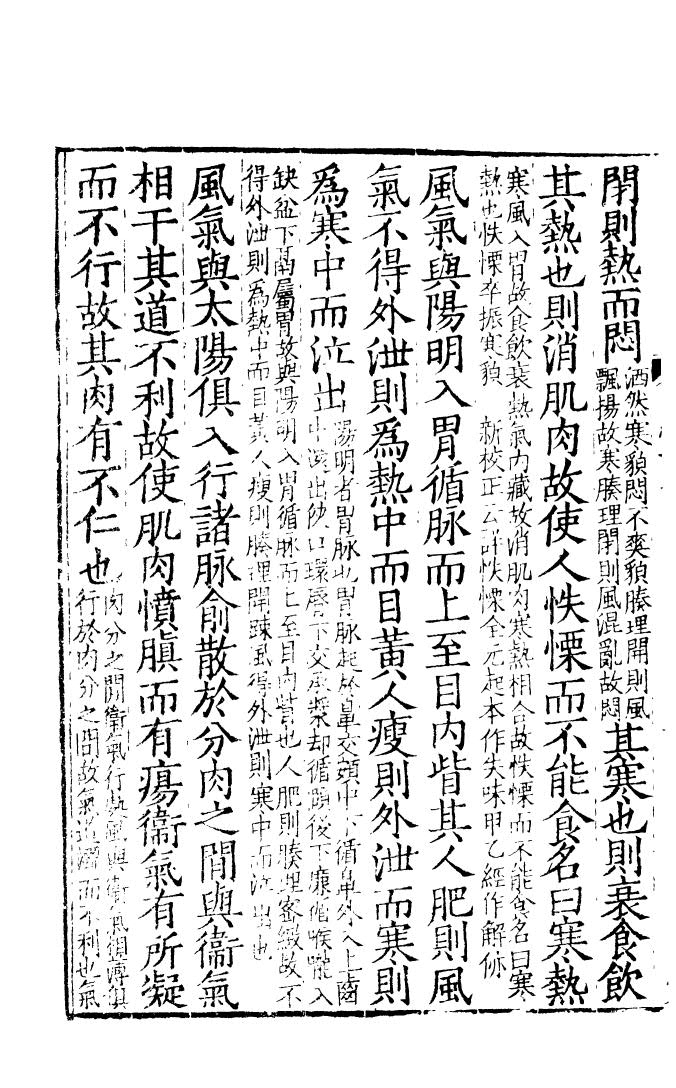 閉則熱而悶洒然寒貌悶不爽貌腠理開則風飄揚故寒腠理閉則風混亂故悶其寒也則衰食飲
其熱也則消肌肉故使人怢慄而不能食名曰寒熱
寒風入胃故食飲衰熱氣內藏故消肌肉寒熱相合故怢慄而不能食名曰寒
熱也怢慄卒振寒貌 新校正云詳怢慄全元起本作失味甲乙經作解㑊
風氣與陽明入胃循脉而上至目內眥其人肥則風
氣不得外泄則為熱中而目黃人瘦則外泄而寒則
為寒中而泣出陽明者胃脉也胃脉起於鼻交頞中下循鼻外入上齒中還出俠口環脣下交承漿却循頤後下廉循喉嚨入
缺盆下鬲屬胃故與陽明入胃循脉而上至目內眥也人肥則腠理密緻故不
得外泄則為熱中而目黃人瘦則腠理開疎風得外泄則寒中而泣出也
風氣與太陽俱入行諸脉俞散於分肉之間與衞氣
相干其道不利故使肌肉憤䐜而有瘍衞氣有所凝
而不行故其肉有不仁也肉分之間衞氣行處風與衞氣相薄俱行於肉分之間故氣道濇而不利也氣